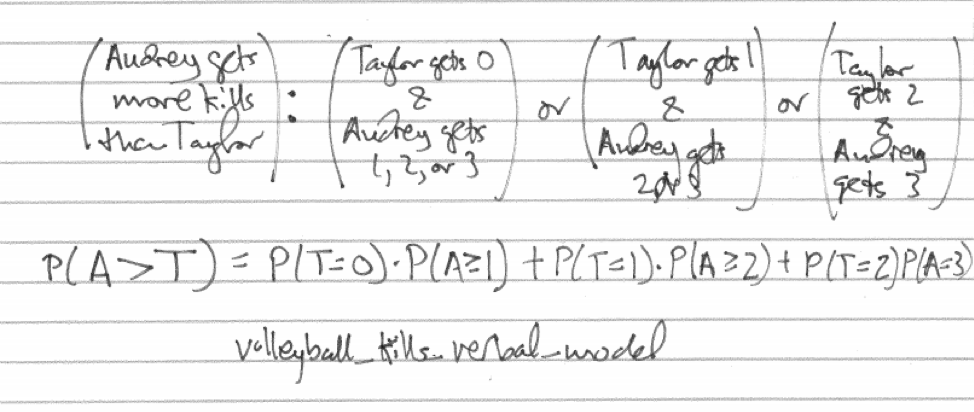 (Audrey gets more kills than Taylor) : (Taylor gets 0 & Audrey gets 1, 2, or 3) or (Taylor gets 1 & Audrey gets 2 or 3) or (Taylor gets 2 & Audrey gets 3)
P(A>T) = P(T=0)·P(A≥1) + P(T=1)·P(A≥2) + P(T=2)P(A=3)
volleyball_kills_verbal_model